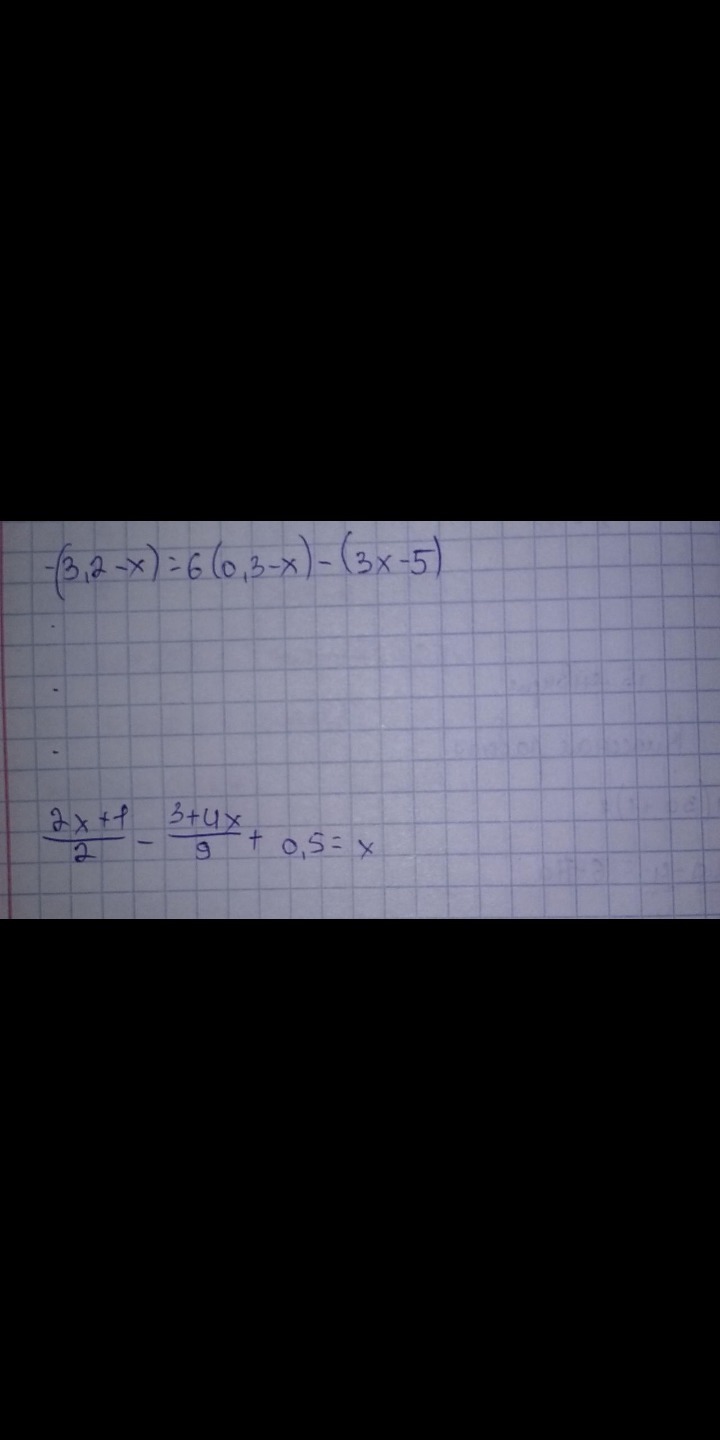 -(3,2-x)=6(0,3-x)-(3x-5)
\frac{2x+1}{2} - \frac{3+4x}{9} + 0,5 = x